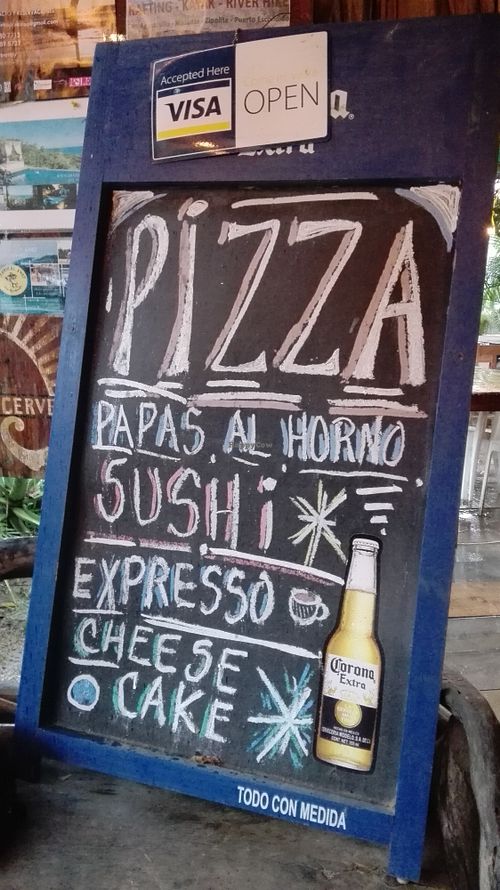 RAFTING - KAYAK - RIVER HIKE
Accepted Here
VISA
OPEN
PIZZA
PAPAS AL HORNO
SUSHi
EXPRESSO
CHEESE
CAKE
Corona
Extra
TODO CON MEDIDA
CERVE